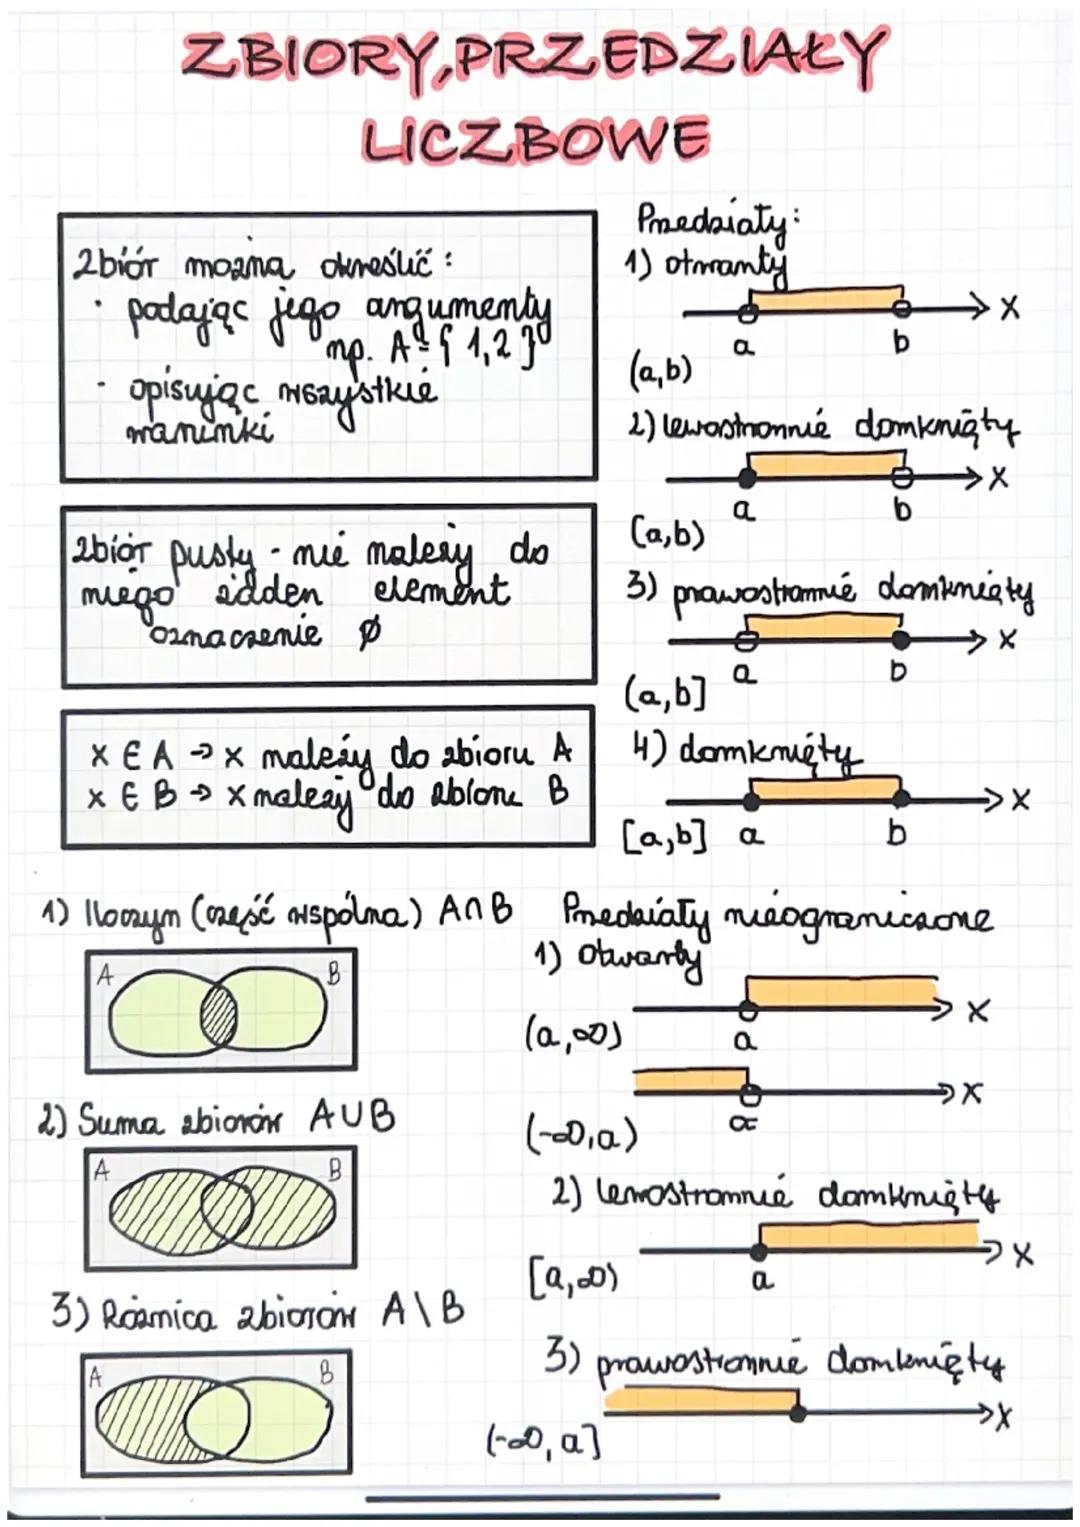 ZBIORY, PRZEDZIAŁY
LICZBOWE
Zbiór można określić:
· podając jego argumenty
np. A = { 1,2 }
- opisując wszystkie
warunki
Zbiór pusty - nie należy do
niego żadden element
oznaczenie ∅
x ∈ A → x należy do zbioru A
x ∈ B → x należy do zbioru B
1) Iloczyn (część wspólna) A∩B
A B
2) Suma zbiorów A∪B
A B
3) Różnica zbiorów A \ B
A B
Przedziały:
1) otwarty
x
a b
(a,b)
2) lewostronnie domknięty
x
a b
(a,b)
3) prawostronnie domknięty
x
a b
(a,b]
4) domknięty
x
[a,b] a b
Przedziały nieograniczone
1) Otwarty
x
(a,∞) a
x
(-∞,a) a
2) lewostronnie domknięty
x
[a,∞) a
3) prawostronnie domknięty
x
(-∞,a]